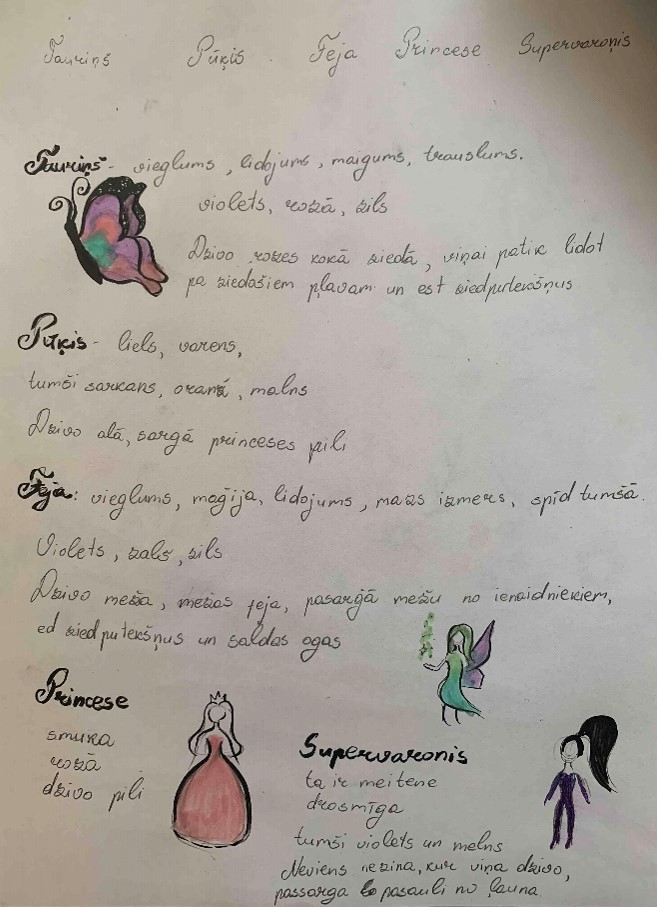 Tauriņš Pūķis Feja Princese Supervaroņis
Tauriņš - vieglums, lidojums, maigums, trauslums.
violets, rozā, zils
Dzīvo rozes kokā ziedā, viņai patīk lidot
pa ziedošiem pļavam un ēst ziedputekšņus
Pūķis - liels, varens,
tumši sarkans, oranž, malns
Dzīvo alā, sargā princeses pili
Feja: vieglums, maģija, lidojums, mazs izmers, spīd tumšā.
Violets, zals, zils
Dzīvo meža, mežas feja, pasargā mežu no ienaidniekiem,
ed ziedputekšņus un saldas ogas
Princese
smuka
rozā
dzīvo pilī
Supervaronis
ta ir meitene
drosmīga
tumši violets un melns
Neviens nezina, kur viņa dzīvo,
passarga pasauli no ļauna